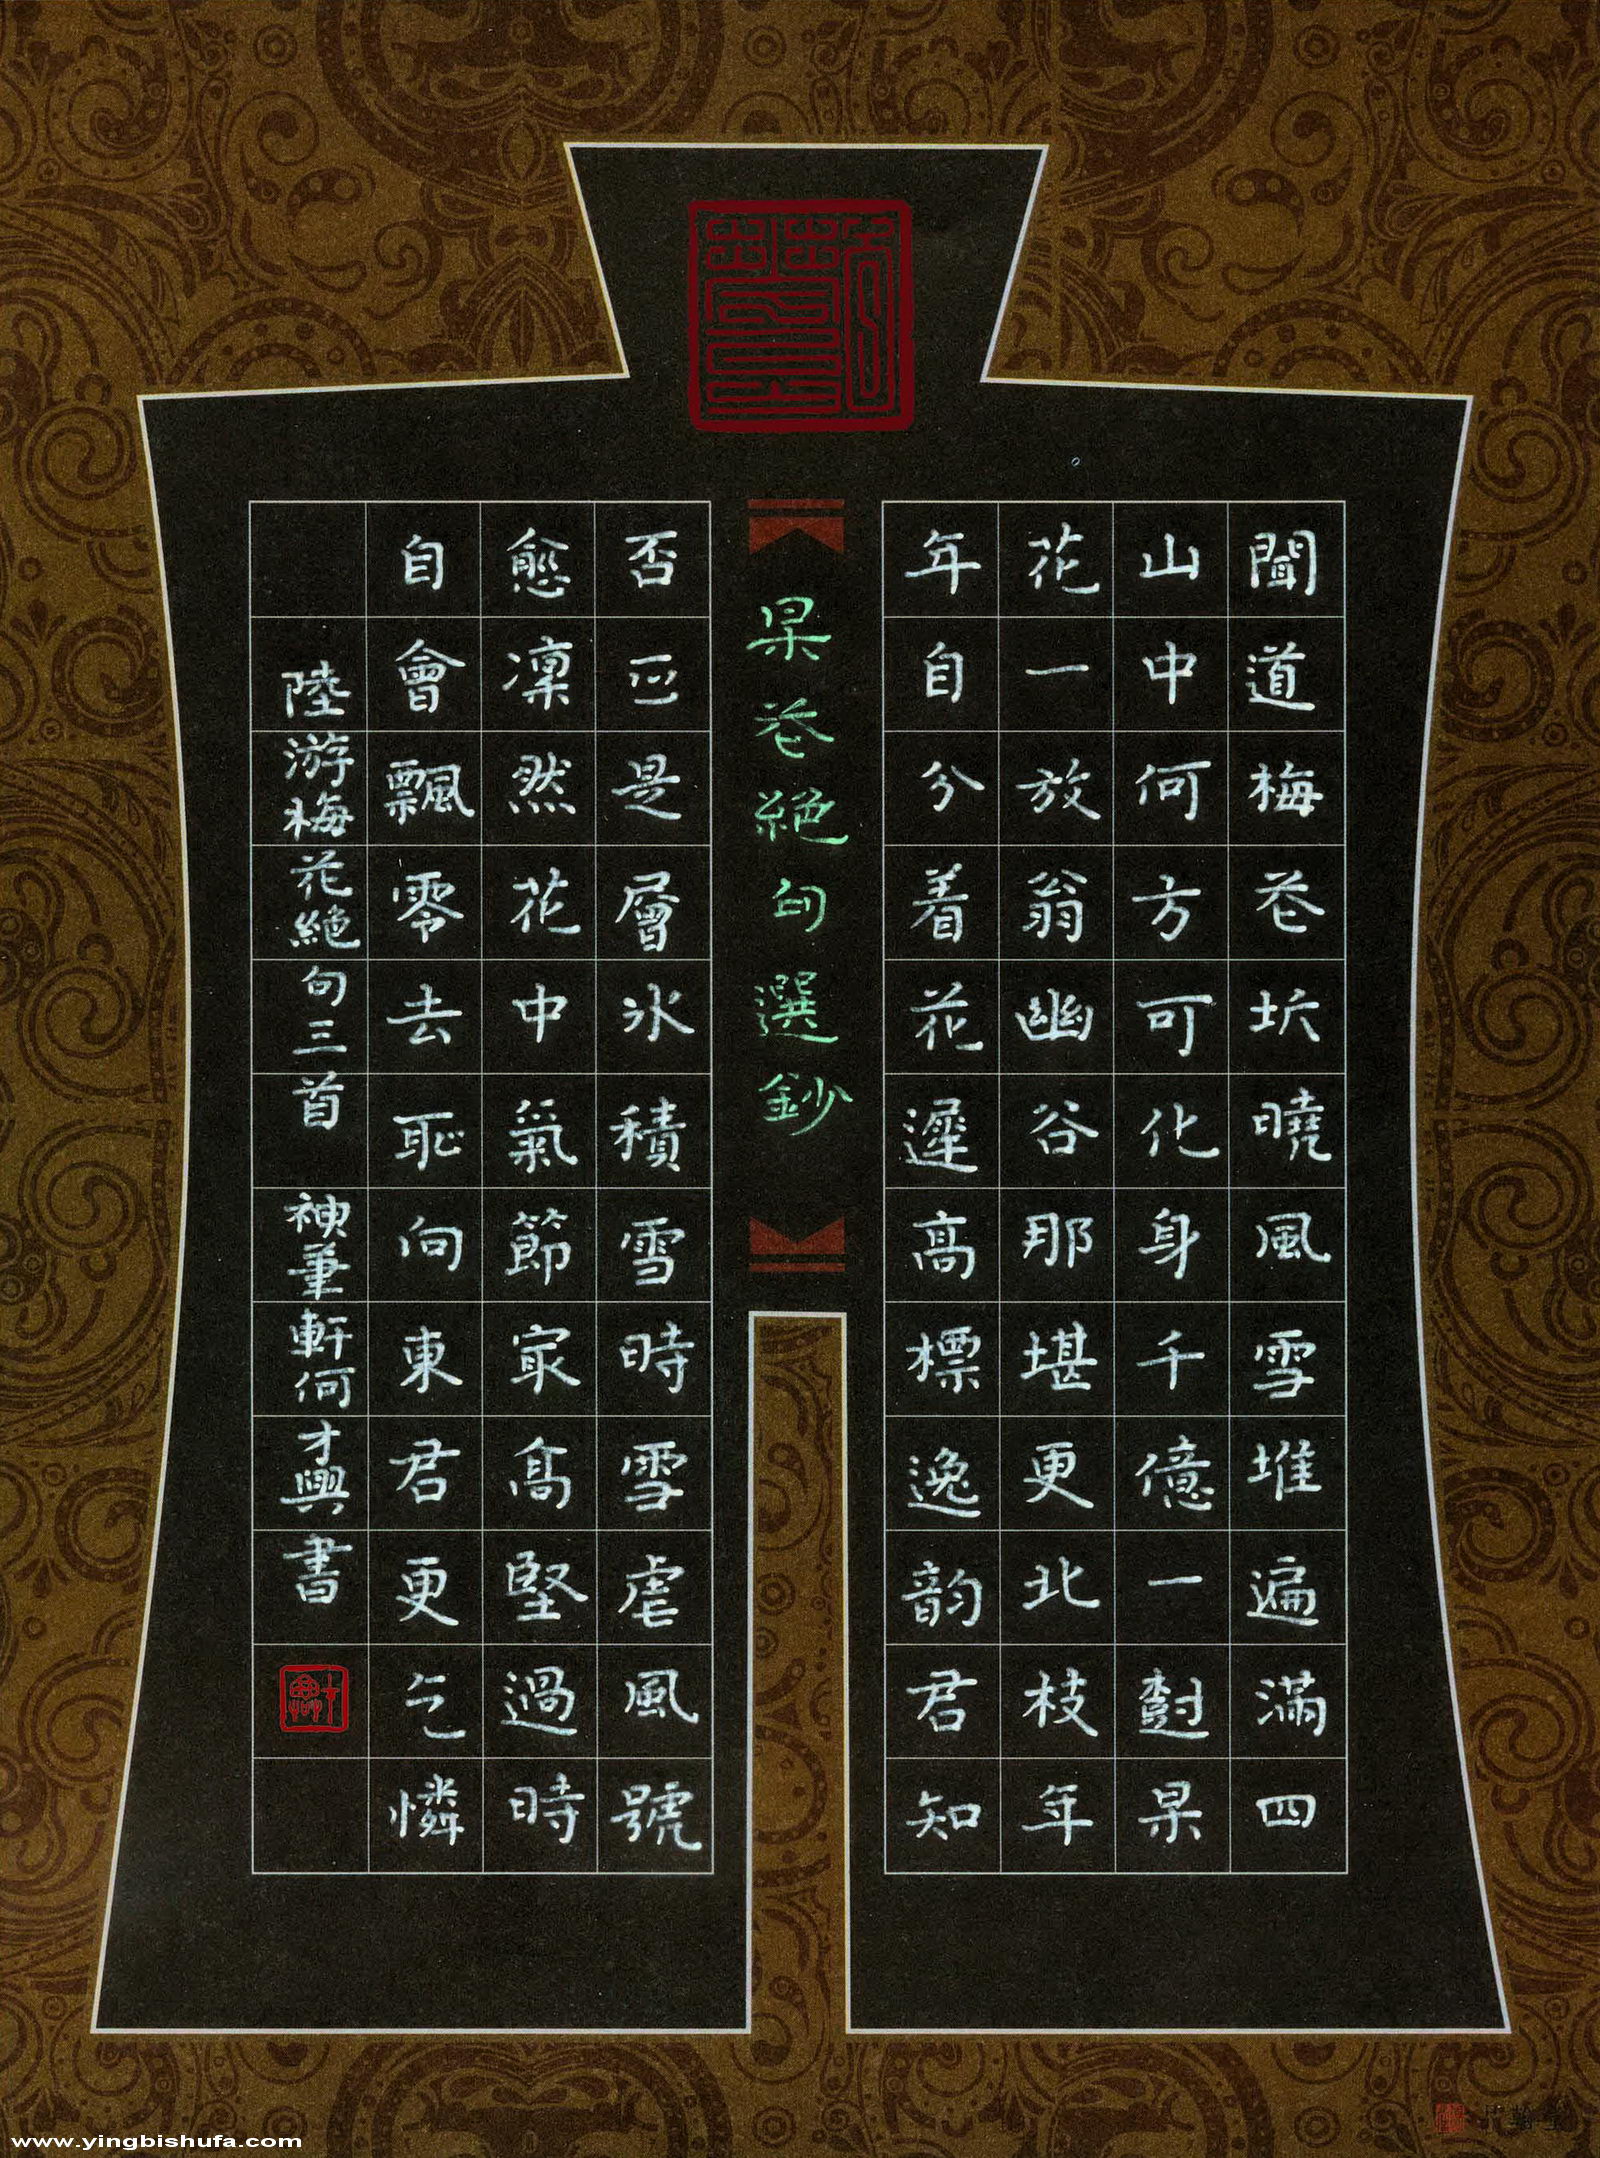 聞道梅花坼曉風雪堆遍滿四
山中何方可化身千億一樹梅
花一放翁幽谷那堪更北枝年
年自分着花遲高標逸韵君知
梅花絕句選鈔
否正是層冰積雪時雪虐風號
愈凜然花中氣節最高堅過時
自會飄零去恥向東君更乞憐
陸游梅花絕句三首 神筆軒何才興書
www.yingbishufa.com